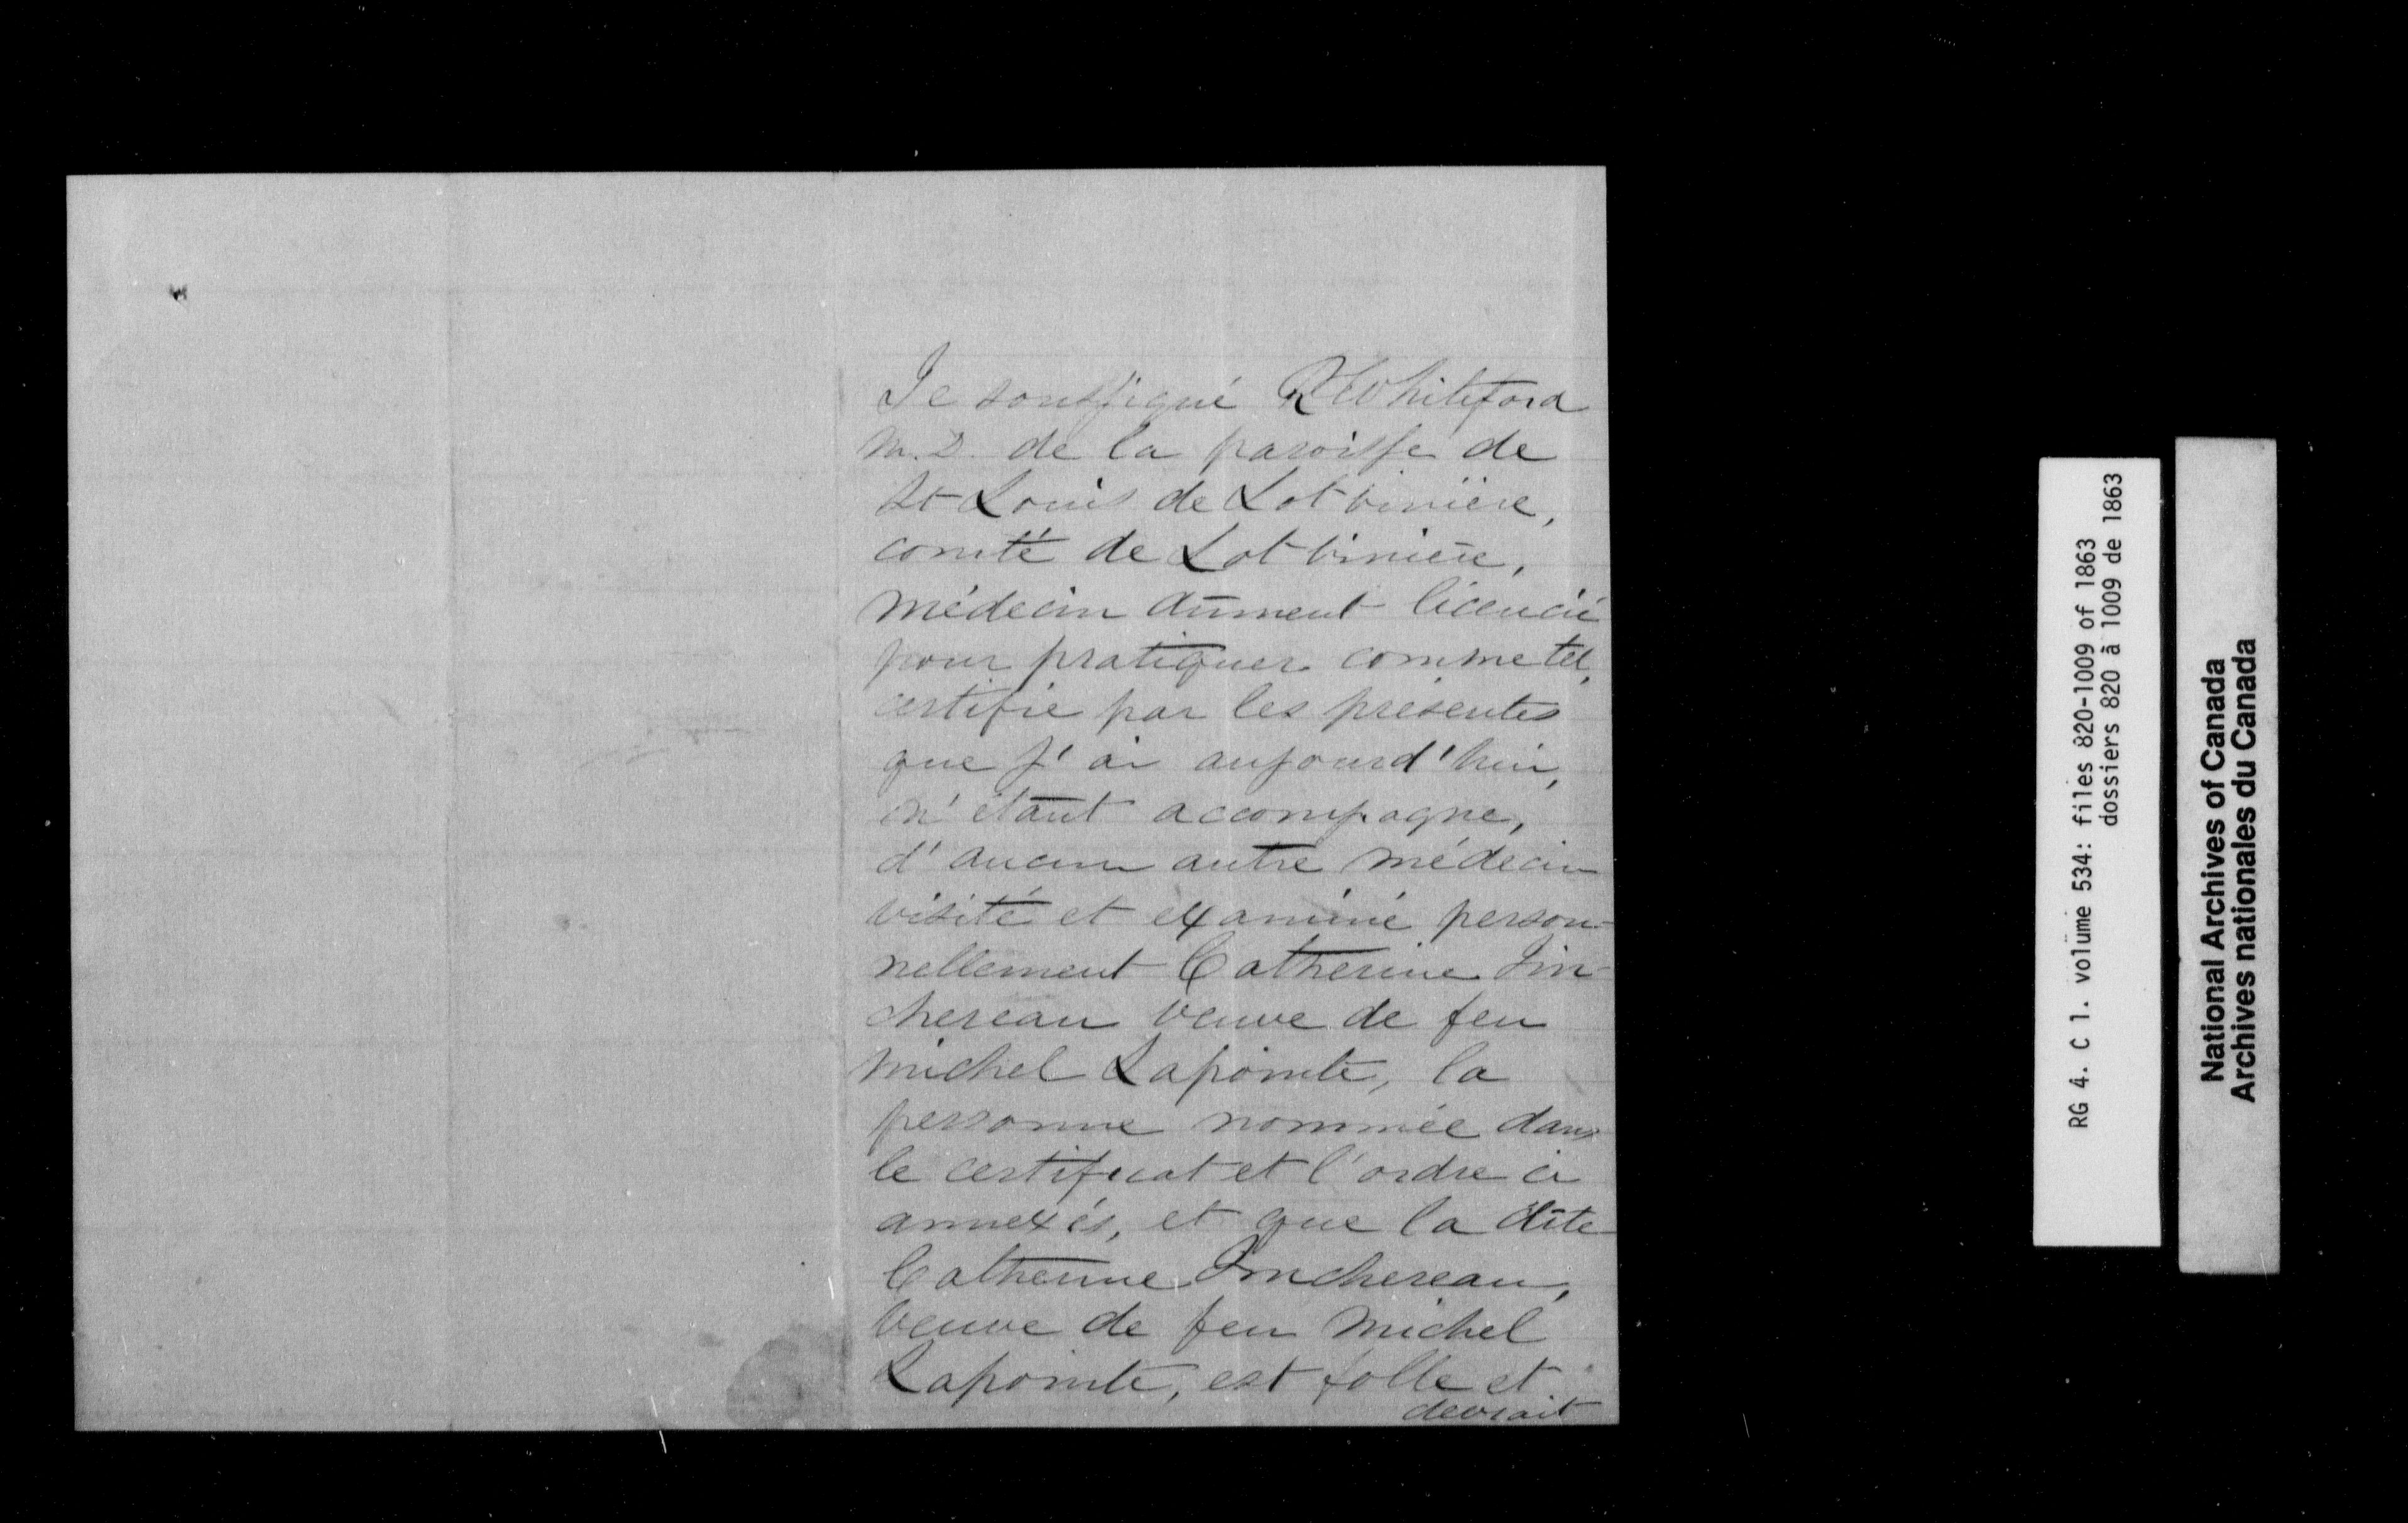 Je soussigné R Whiteford
M.D. de la paroisse de
St Louis de Lotbinière,
comté de Lotbinière,
médecin dûment licencié
pour pratiquer comme tel,
certifie par les présentes
que j'ai aujourd'hui,
n'étant accompagné,
d'aucun autre médecin
visité et examiné person-
nellement Catherine Jin-
chereau veuve de feu
Michel Lapointe, la
personne nommée dans
le certificat et l'ordre ci
annexés, et que la dîte
Catherine Jinchereau,
veuve de feu Michel
Lapointe, est folle et
devrait
RG 4. C 1. volume 534: files 820-1009 of 1863
dossiers 820 à 1009 de 1863
National Archives of Canada
Archives nationales du Canada